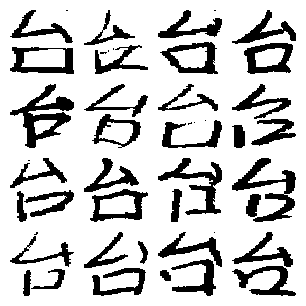 台台台台
台台台台
台台台台
台台台台